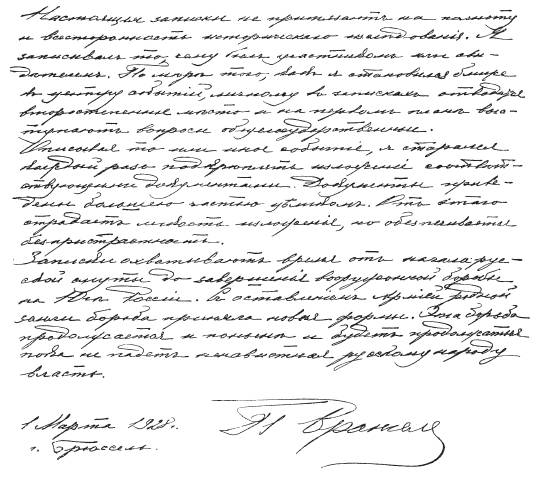 Настоящiя записки не притязаютъ на полноту
и всесторонность историческаго изслѣдованiя. Я
записывалъ то, чему былъ участникомъ или сви-
дѣтелемъ. По мѣрѣ того, какъ я становился ближе
къ центру событiй, личному въ запискахъ отводится
второстепенное мѣсто и на первый планъ выс-
тупаютъ вопросы общегосударственные.
Описывая то или иное событiе, я старался
каждый разъ подкрѣплять изложенiе соотвѣт-
ствующими документами. Документы приве-
дены большею частью цѣликомъ. Отъ этого
страдаетъ живость изложенiя, но обезпечивается
безпристрастность.
Записки охватываютъ время отъ начала рус-
ской смуты до завершенiя вооруженной борьбы
на Югѣ Россiи. Съ оставленiемъ Армiей родной
земли борьба приняла новыя формы. Эта борьба
продолжается и понынѣ и будетъ продолжаться
пока не падетъ ненавистная русскому народу
власть.
1 Марта 1928 г.
г. Брюссель.
П Врангель